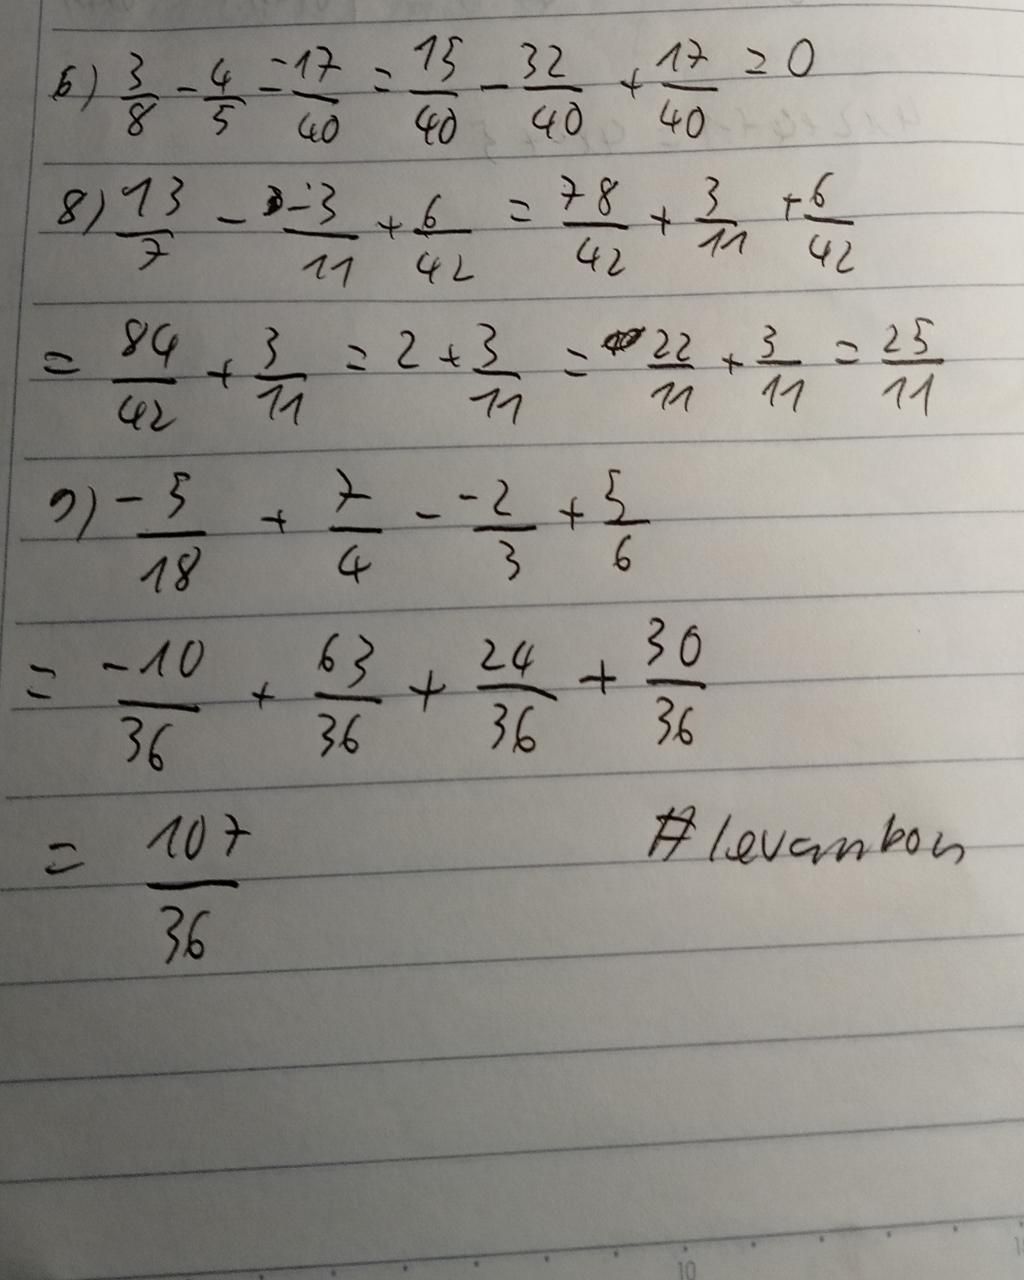 6) 3/8 - 4/5 - -17/40 = 15/40 - 32/40 + 17/40 = 0
8) 13/7 - -3/11 + 6/42 = 78/42 + 3/11 + 6/42
= 84/42 + 3/11 = 2 + 3/11 = 22/11 + 3/11 = 25/11
9) -5/18 + 7/4 - -2/3 + 5/6
= -10/36 + 63/36 + 24/36 + 30/36
= 107/36 #levanbon
10